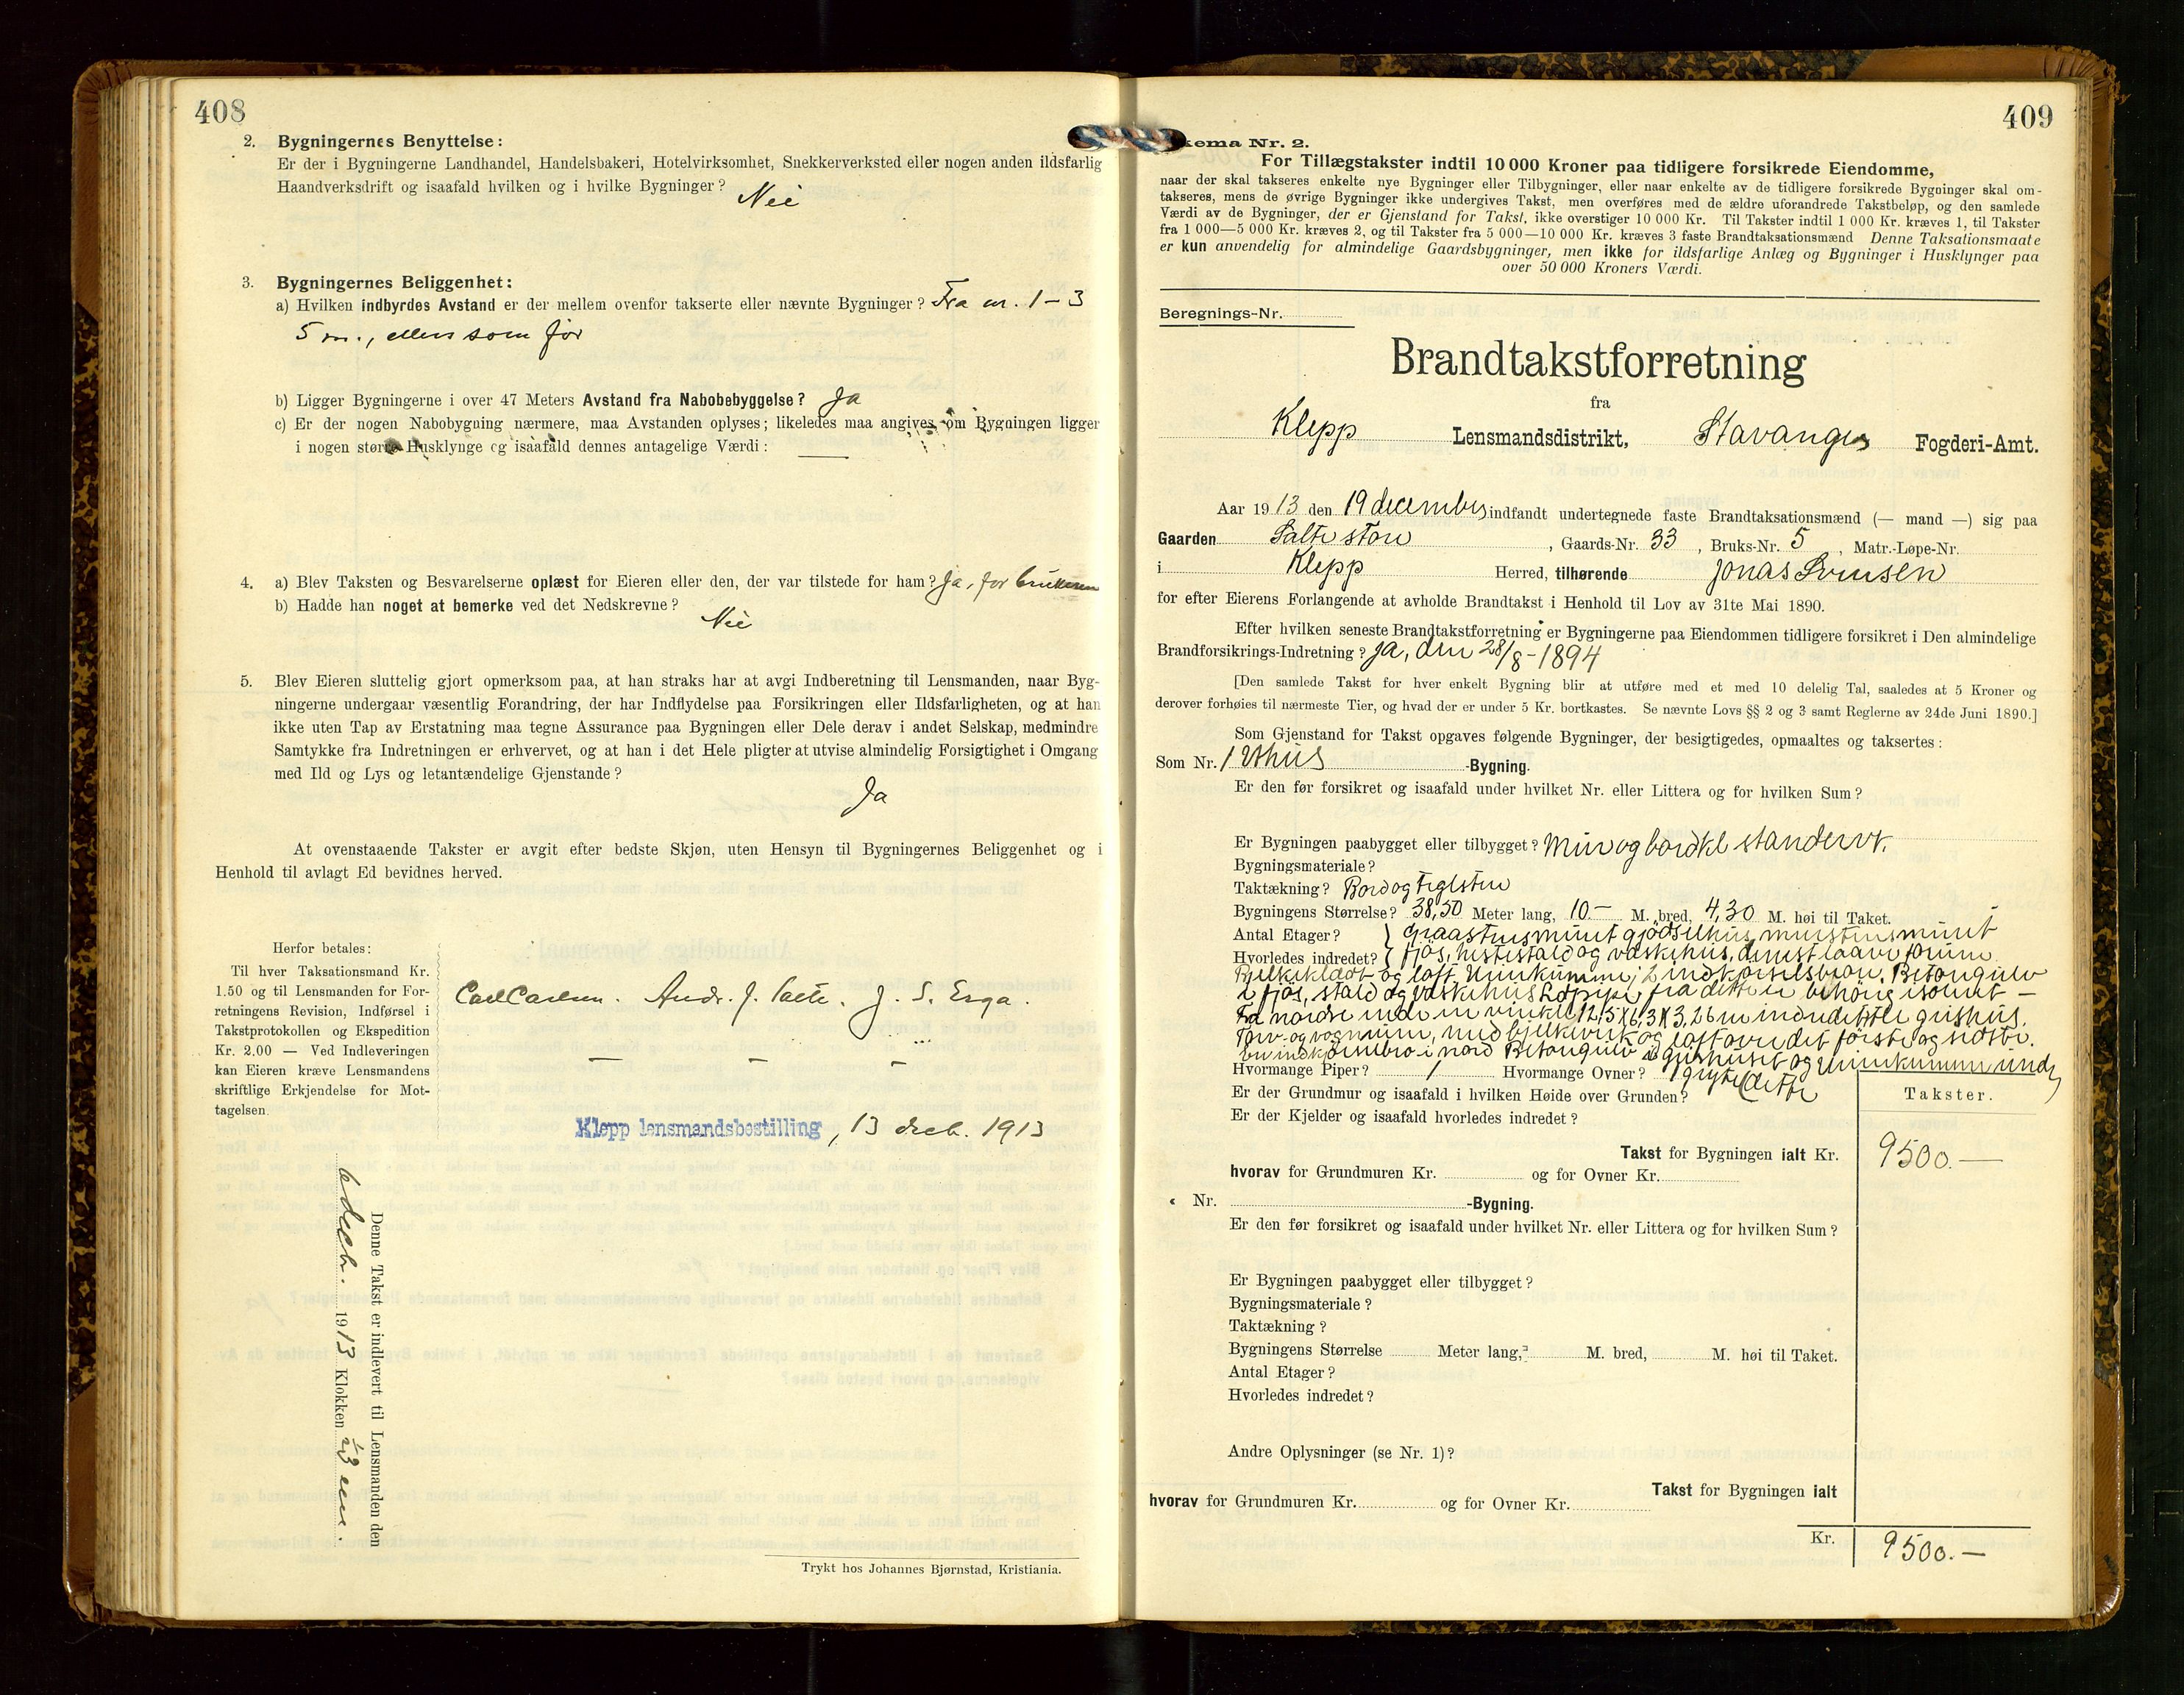 408
2. Bygningernes Benyttelse:
Er der i Bygningerne Landhandel, Handelsbakeri, Hotelvirksomhet, Snekkerverksted eller nogen anden ildsfarlig
Haandverksdrift og isaafald hvilken og i hvilke Bygninger? Nei
3. Bygningernes Beliggenhet:
a) Hvilken indbyrdes Avstand er der mellem ovenfor takserte eller nævnte Bygninger? Fra nr. 1-3
5 m., ellers som før
b) Ligger Bygningerne i over 47 Meters Avstand fra Nabobebyggelse? Ja
c) Er der nogen Nabobygning nærmere, maa Avstanden oplyses; likeledes maa angives, om Bygningen ligger
i nogen større Husklynge og isaafald dennes antagelige Værdi: —
4. a) Blev Taksten og Besvarelserne oplæst for Eieren eller den, der var tilstede for ham? Ja, for brukeren
b) Hadde han noget at bemerke ved det Nedskrevne?
Nei
5. Blev Eieren sluttelig gjort opmerksom paa, at han straks har at avgi Indberetning til Lensmanden, naar Byg-
ningerne undergaar væsentlig Forandring, der har Indflydelse paa Forsikringen eller Ildsfarligheten, og at han
ikke uten Tap av Erstatning maa tegne Assurance paa Bygningen eller Dele derav i andet Selskap, medmindre
Samtykke fra Indretningen er erhvervet, og at han i det Hele pligter at utvise almindelig Forsigtighet i Omgang
med Ild og Lys og letantændelige Gjenstande?
Ja
At ovenstaaende Takster er avgit efter bedste Skjøn, uten Hensyn til Bygningernes Beliggenhet og i
Henhold til avlagt Ed bevidnes herved.
Herfor betales:
Til hver Taksationsmand Kr.
1.50 og til Lensmanden for For-
retningens Revision, Indførsel i
Takstprotokollen og Ekspedition
Kr. 2.00 — Ved Indleveringen
kan Eieren kræve Lensmandens
skriftlige Erkjendelse for Mot-
tagelsen.
Carl Carlsen. Andr. J. Salte. J. S. Erga.
— — —
Klepp lensmandsbestilling, 13 decb. 1913
Denne Takst er indlevert til Lensmanden den
6 decb. 1913 Klokken
Trykt hos Johannes Bjørnstad, Kristiania.
409
kema Nr. 2.
For Tillægstakster indtil 10 000 Kroner paa tidligere forsikrede Eiendomme,
naar der skal takseres enkelte nye Bygninger eller Tilbygninger, eller naar enkelte av de tidligere forsikrede Bygninger skal om-
takseres, mens de øvrige Bygninger ikke undergives Takst, men overføres med de ældre uforandrede Takstbeløp, og den samlede
Værdi av de Bygninger, der er Gjenstand for Takst, ikke overstiger 10 000 Kr. Til Takster indtil 1 000 Kr. kræves 1, til Takster
fra 1 000—5 000 Kr. kræves 2, og til Takster fra 5 000—10 000 Kr. kræves 3 faste Brandtaksationsmænd Denne Taksationsmaate
er kun anvendelig for almindelige Gaardsbygninger, men ikke for ildsfarlige Anlæg og Bygninger i Husklynger paa
over 50 000 Kroners Værdi.
Beregnings-Nr.
Brandtakstforretning
fra
Klepp Lensmandsdistrikt, Stavanger Fogderi-Amt.
Aar 1913 den 19 december indfandt undertegnede faste Brandtaksationsmænd (— mand —) sig paa
Gaarden Salte store, Gaards-Nr. 33, Bruks-Nr. 5, Matr.-Løpe-Nr.
i Klepp Herred, tilhørende Jonas Svensen
for efter Eierens Forlangende at avholde Brandtakst i Henhold til Lov av 31te Mai 1890.
Efter hvilken seneste Brandtakstforretning er Bygningerne paa Eiendommen tidligere forsikret i Den almindelige
Brandforsikrings-Indretning? Ja, den 28/8-1894
[Den samlede Takst for hver enkelt Bygning blir at utføre med et med 10 delelig Tal, saaledes at 5 Kroner og
derover forhøies til nærmeste Tier, og hvad der er under 5 Kr. bortkastes. Se nævnte Lovs §§ 2 og 3 samt Reglerne av 24de Juni 1890.]
Som Gjenstand for Takst opgaves følgende Bygninger, der besigtigedes, opmaaltes og taksertes:
Som Nr. 1 Uthus -Bygning.
Er den før forsikret og isaafald under hvilket Nr. eller Littera og for hvilken Sum?
Er Bygningen paabygget eller tilbygget? Mur og bordkl standerv.
Bygningsmateriale?
Taktækning? Bord og teglsten
Bygningens Størrelse? 38,50 Meter lang, 10.— M. bred, 4,30 M. høi til Taket.
Antal Etager? graastensmuret gjødselhus, murstensmuret
Hvorledes indredet? fjøs, hestestald og vaskehus, øverst laave forum
Bjelkeklædt og loft. Urinkumme, 2 indkjørselsbroer. Betongulv
i fjøs, stald og vaskehus. fra dette er behørig isoleret —
Fra nordre ende en vinkel 12,5 x 6,3 x 3,26 m indredet til grishus.
Torv- og vognrum, med bjelkeverk og loft over det første og sidste.
En indkjørselbro i nord Betongulv i grishuset og urinkummen under
Hvormange Piper? 1 Hvormange Ovner? 1 gryte dette
Er der Grundmur og isaafald i hvilken Høide over Grunden?
Er der Kjelder og isaafald hvorledes indredet?
Takster.
Takst for Bygningen ialt Kr. 9500.—
hvorav for Grundmuren Kr. og for Ovner Kr.
« Nr. -Bygning.
Er den før forsikret og isaafald under hvilket Nr. eller Littera og for hvilken Sum?
Er Bygningen paabygget eller tilbygget?
Bygningsmateriale?
Taktækning?
Bygningens Størrelse Meter lang, M. bred, M. høi til Taket.
Antal Etager?
Hvorledes indredet?
Andre Oplysninger (se Nr. 1)?
Takst for Bygningen ialt
hvorav for Grundmuren Kr. og for Ovner Kr.
Kr. 9500.—